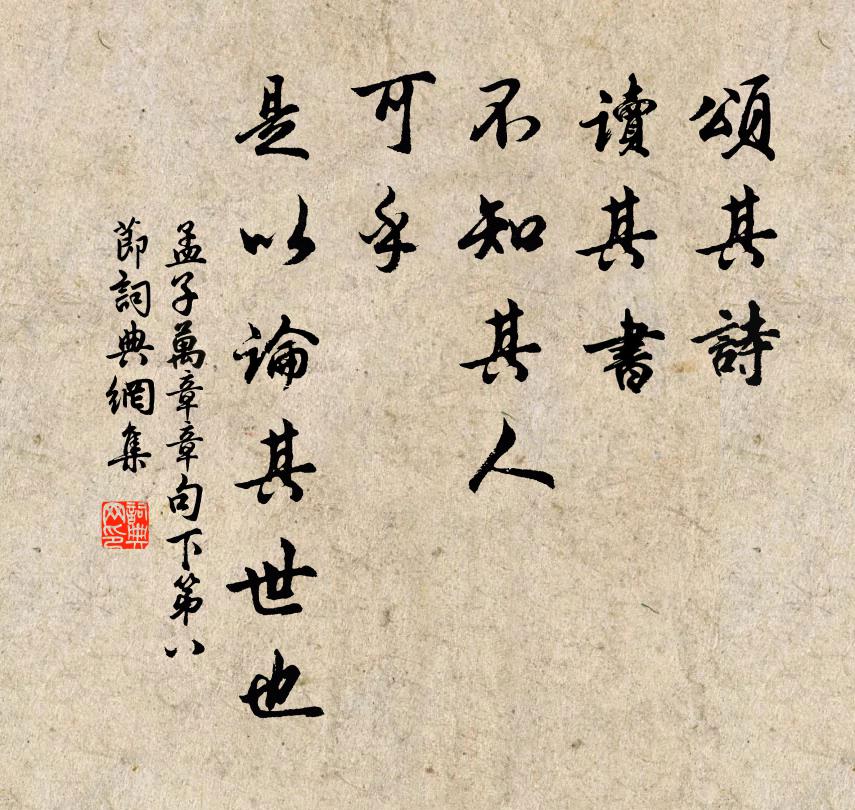 頌其詩
讀其書
不知其人
可乎
是以論其世也
孟子萬章章句下第八
節詞典網集
詞典
网印